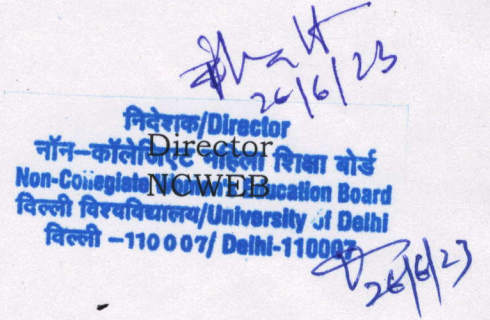 26/6/23
निदेशक/Director
Director
नॉन-कॉलेजिएट महिला शिक्षा बोर्ड
NCWEB
Non-Collegiate Women's Education Board
दिल्ली विश्वविद्यालय/University of Delhi
दिल्ली -110007/ Delhi-110007
26/6/23